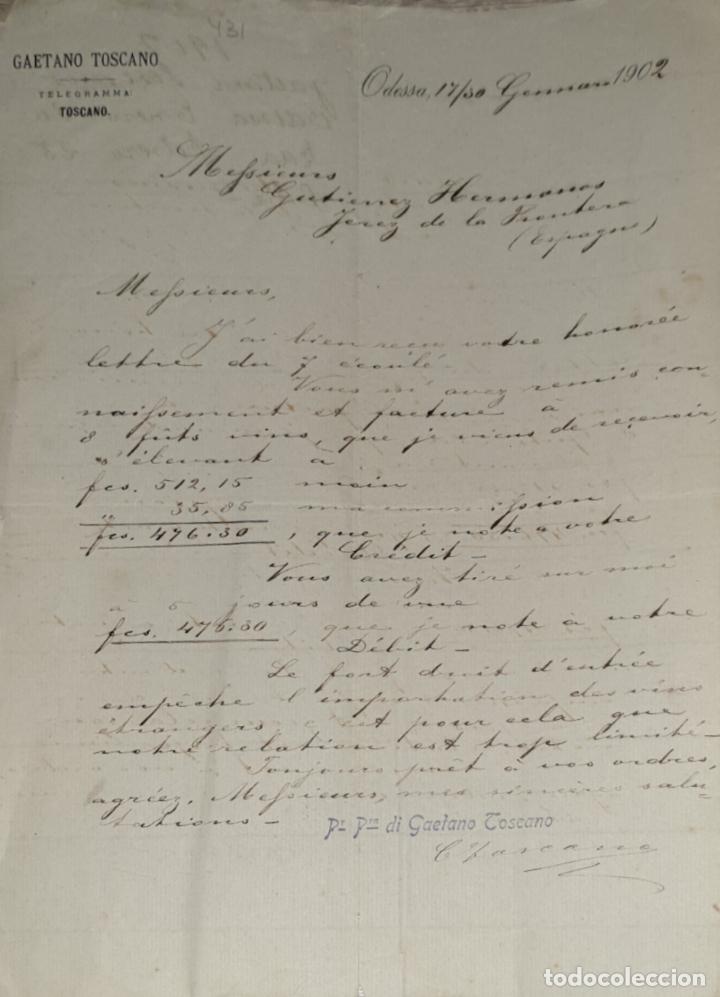 431
GAETANO TOSCANO
TELEGRAMMA
TOSCANO.
Odessa, 17/30 Gennaro 1902
Messieurs
Gutierrez Hermanos
Jerez de la Frontera
(Espagne)
Messieurs,
J'ai bien reçu votre honorée
lettre du 7 écoulé.
Vous m'avez remis con-
naissement et facture à
8 fûts vins, que je viens de recevoir,
s'élevant à
fcs. 512,15 moin
" 35,85 ma commission
fcs. 476.30, que je note à votre
Crédit -
Vous avez tiré sur moi
à 5 jours de vue
fcs. 476.30, que je note à votre
Débit -
Le fort droit d'entrée
empêche l'importation des vins
étrangers c'est pour cela que
notre relation est trop limité -
Toujours prêt à vos ordres,
agréez, Messieurs, mes sincères salu-
tations -
Pr. Pra di Gaetano Toscano
C Toscano
todocoleccion